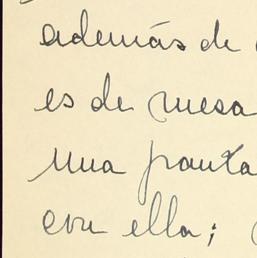 además de
es de mesa
una pauta
con ella;